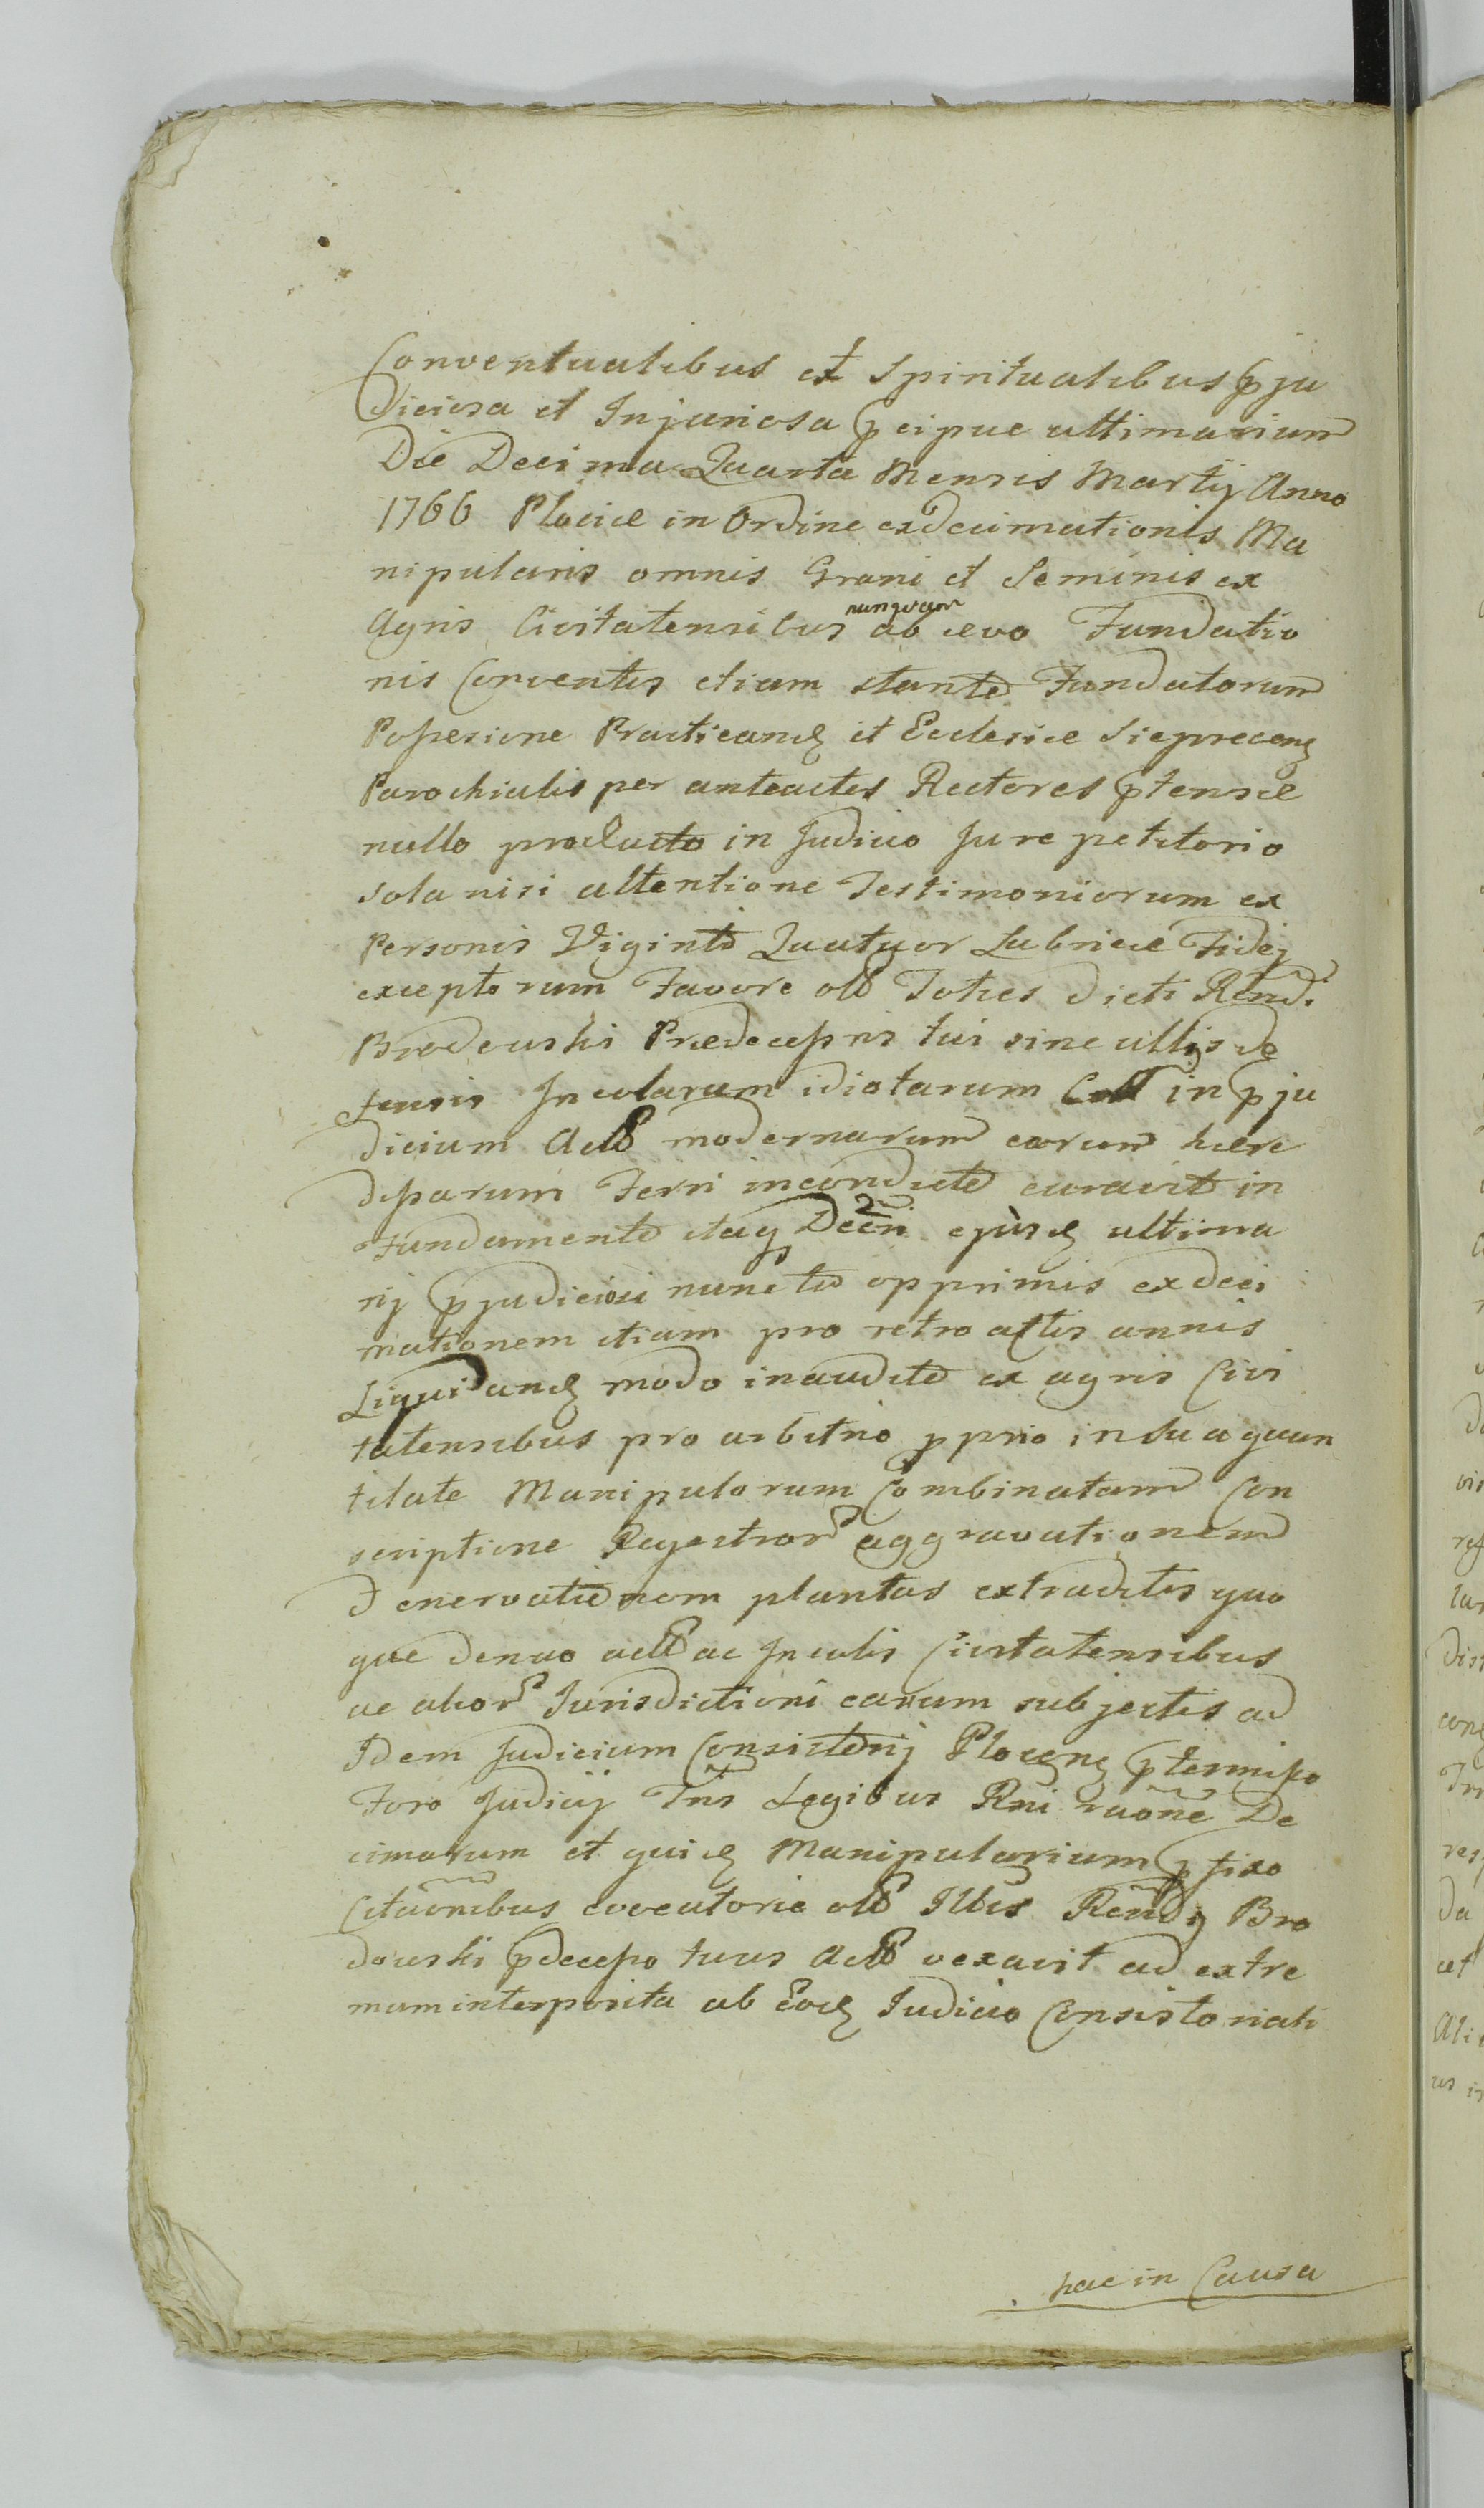 Conventualibus et Spiritualibus p̱ju
diciosa et Injuriosa p̱cipue ultimarium
Die Decima Quarta Mensis Martij Anno
1766 Plociæ in Ordine exdecimationis Ma
nipularis omnis Grani et Seminis ex
Agris Civitatensibus nunquam ab ævo Fundatio
nis Conventus etiam stante Fundatorum
Possesione Practicandæ et Ecclesiæ Sieprecensis
Parochialis per anteactos Rectores p̱tensæ
nullo producto in Judicio Jure petitorio
sola nisi attentione Testimoniorum ex
Personis Viginti Quatuor Lubricæ Fidei
exceptorum Favore olb Toties dicti Rendi
Brodowski Prædecessoris tui sine ullis de
fensis Incolarum idiotarum in p̱ju
dicium Actt modernarum earum hære
dissarum Ferri incondicte curavit in
Fundamento itaq Decri ejusd ultima
rij p̱judiciosi nunc tu opprimis exdeci
mationem etiam pro retroactis annis
Liquidand modo inaudito ex agris Civi
tatensibus pro arbitrio p̱prio in sua quan
titate Manipulorum Combinatam Con
scriptione Regestror aggravationem
denervationem plantas extraditis quo
que denuo actt ac Incolis Civitatensibus
ac alior Jurisdictioni earum subjectis ad
Idem Judicium Consistorij Plocens p̱termisso
Foro Judicij Tris Legibus Rni raone De
cimarum et quid Manipularium p̱fixo
Citaonibus evocatorie olb Illis Rendg Bro
dowski p̱decesso tuus Actt vexavit ad extre
mum interposita ab Eod Judicio Consistoriali
hac in Causa